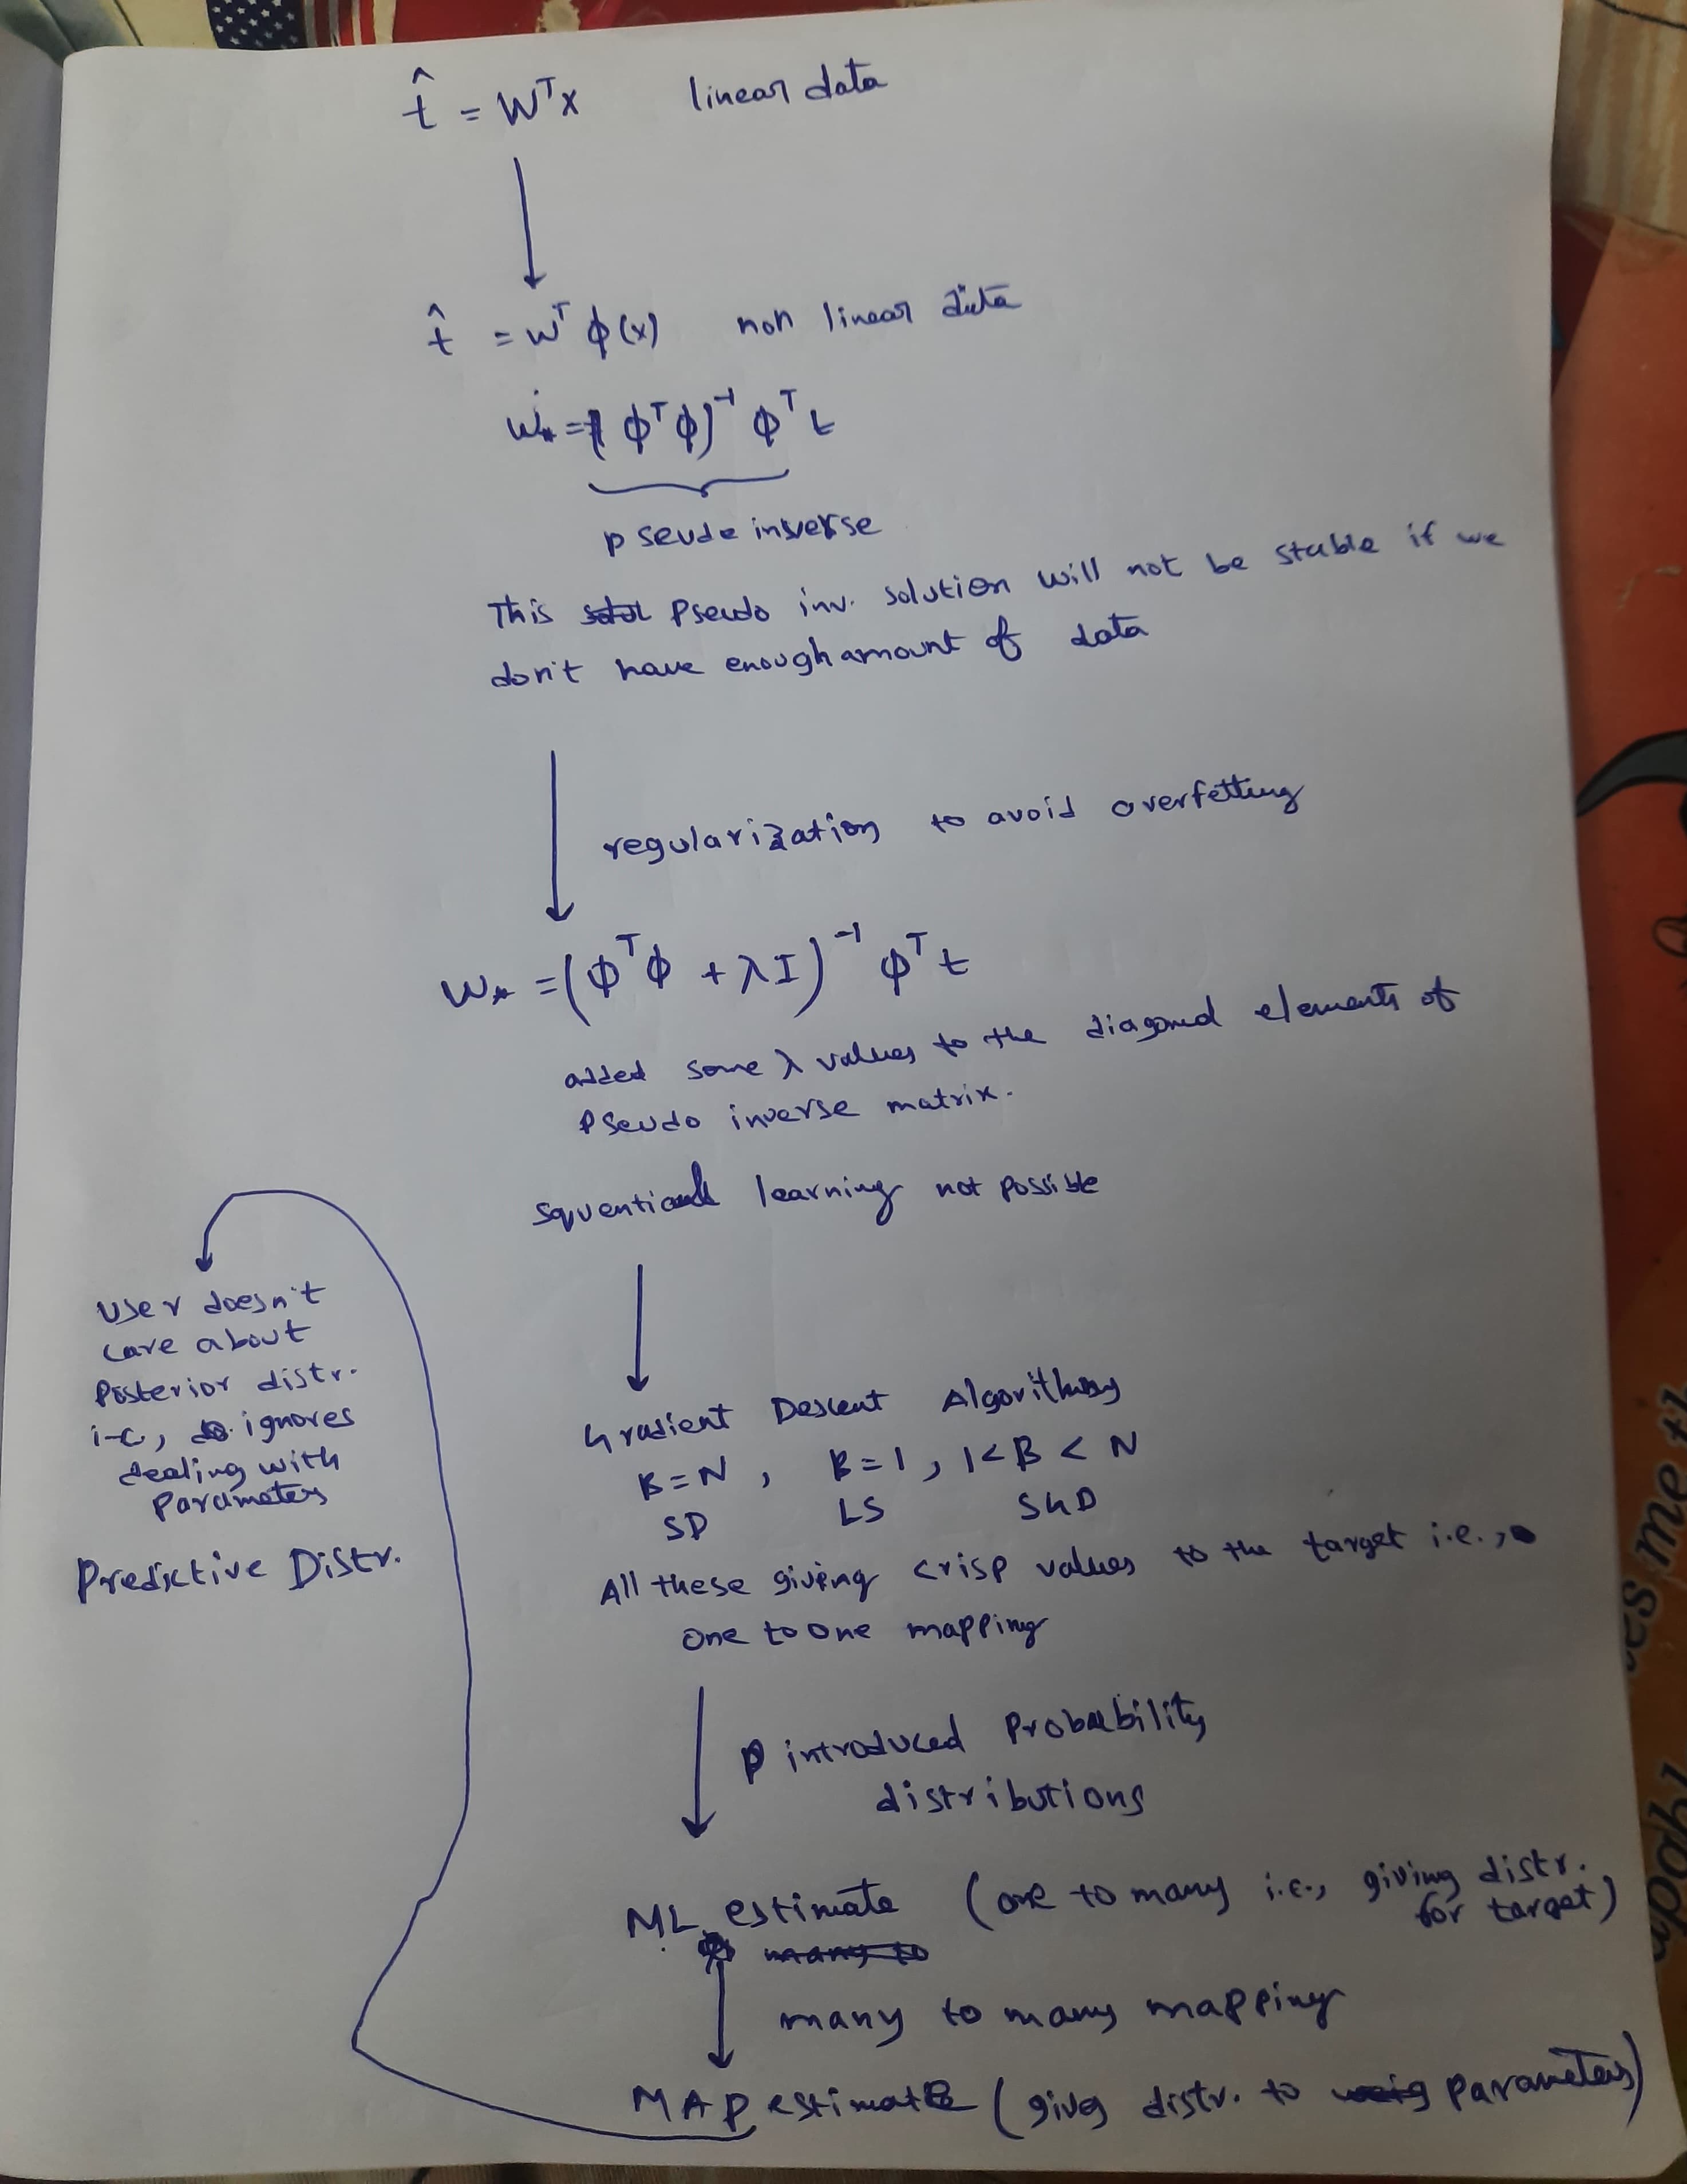 t̂ = Wᵀx linear data
t̂ = wᵀ ϕ(x) non linear data
w* = (ϕᵀϕ)⁻¹ ϕᵀ t
pseude inverse
This Pseudo inv. solution will not be stable if we
don't have enough amount of data
regularization to avoid overfetting
w* = (ϕᵀϕ + λI)⁻¹ ϕᵀ t
added some λ values to the diagonal elements of
Pseudo inverse matrix.
Squential learning not possible
Gradient Descent Algorithms
B=N, B=1, 1<B<N
SD LS SGD
All these giving crisp values to the target i.e.,
one to one mapping
introduced Probability
distributions
ML estimate (one to many i.e., giving distr.
for target)
many to
many to many mapping
MAP estimate (gives distr. to parameters)
User doesn't
care about
Posterior distr.
i.e., ignores
dealing with
Parameters
Predictive Distr.
es me th